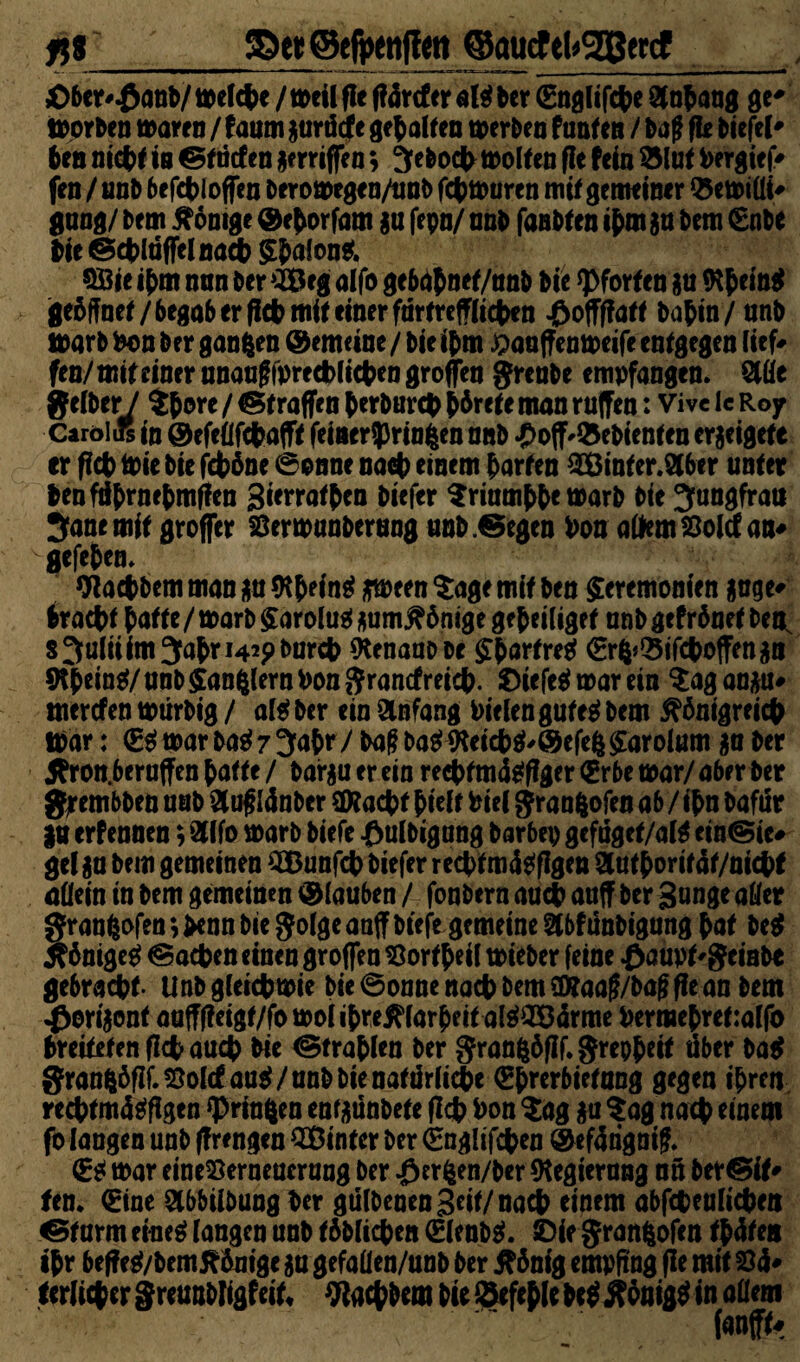 718 Der Gespensten Gauckel-Werck
Ober-Hand/ welche / weil sie stärcker als der Englische Anhang ge-
worden waren / kaum zurücke gehalten werden kunten / daß sie diesel-
ben nicht in Stücken zerrissen; Jedoch wolten sie kein Blut vergies-
sen / und beschlossen derowegen/und schwuren mit gemeiner Bewilli-
gung/ dem Könige Gehorsam zu seyn/ und sandten ihm zu dem Ende
die Schlüssel nach Chalons.
Wie ihm nun der Weg also gebähnet/und die Pforten zu Rheins
geöffnet / begab er sich mit einer fürtrefflichen Hoffstatt dahin / und
ward von der gantzen Gemeine / die ihm Hauffenweise entgegen lief-
fen/ mit einer unaußsprechlichen grossen Freude empfangen. Alle
Felder / Thore / Strassen herdurch hörete man ruffen: Vive le Roy
Carolus in Gesellschafft seiner Printzen und Hoff-Bedienten erzeigete
er sich wie die schöne Sonne nach einem harten Winter. Aber unter
den fürnehmsten Zierrathen dieser Triumphe ward die Jungfrau
Jane mit grosser Verwunderung und Segen von allem Volck an-
gesehen.
Nachdem man zu Rheins zween Tage mit den Ceremonien zuge-
bracht hatte / ward Carolus zum Könige geheiliget und gekrönet den
8 Julii im Jahr 1429 durch Renaud de Chartres Ertz-Bischoffen zu
Rheins/ und Cantzlern von Franckreich. Dieses war ein Tag anzu-
mercken würdig / als der ein Anfang vielen gutes dem Königreich
war: Es war das 7 Jahr / daß das Reichs-Gesetz Carolum zu der
Kron beruffen hatte / darzu er ein rechtmässiger Erbe war/ aber der
Frembden und Außländer Macht hielt viel Frantzosen ab / ihn dafür
zu erkennen; Also ward diese Huldigung darbey gefüget/als ein Sie-
gel zu dem gemeinen Wunsch dieser rechtmässigen Authorität/nicht
allein in dem gemeinen Glauben / sondern auch auff der Zunge aller
Frantzosen; denn die Folge auff diese gemeine Abkündigung hat des
Königes Sachen einen grossen Vortheil wieder seine Haupt-Feinde
gebracht. Und gleichwie die Sonne nach dem Maaß/daß sie an dem
Horizont auffsteigt/so wol ihre Klarheit als Wärme vermehret: also
breiteten sich auch die Strahlen der Frantzösis. Freyheit über das
Frantzösis. Volck aus / und die natürliche Ehrerbietung gegen ihren
rechtmässigen Printzen entzündete sich von Tag zu Tag nach einem
so langen und strengen Winter der Englischen Gefängniß.
Es war eine Verneuerung der Hertzen/der Regierung uñ der Sit-
ten. Eine Abbildung der güldenen Zeit/ nach einem abscheulichen
Sturm eines langen und tödlichen Elends. Die Frantzosen thäten
ihr bestes/dem Könige zu gefallen/und der König empfing sie mit Vä-
terlicher Freundligkeit. Nachdem die Befehle des Königs in allem
sanfft-